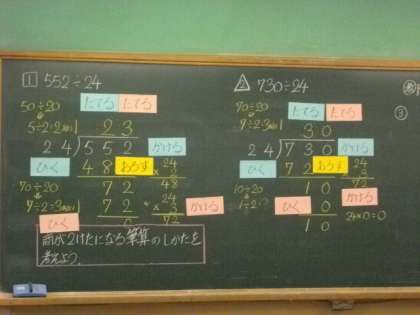 1 552÷24
50÷20
たてる たてる
5÷2=2
23
24)552
かける
ひく
48
おろす
24
×2
48
70÷20
72
7÷2=3
72
24
×3
72
かける
ひく
0
商が2けたになる筆算のしかたを
考えよう。
2 730÷24
70÷20
たてる たてる
7÷2=3
30
24)730
かける
ひく
72
おろす
24
×3
72
10÷20
10
1÷2
ひく
0
かける
24×0=0
10
3